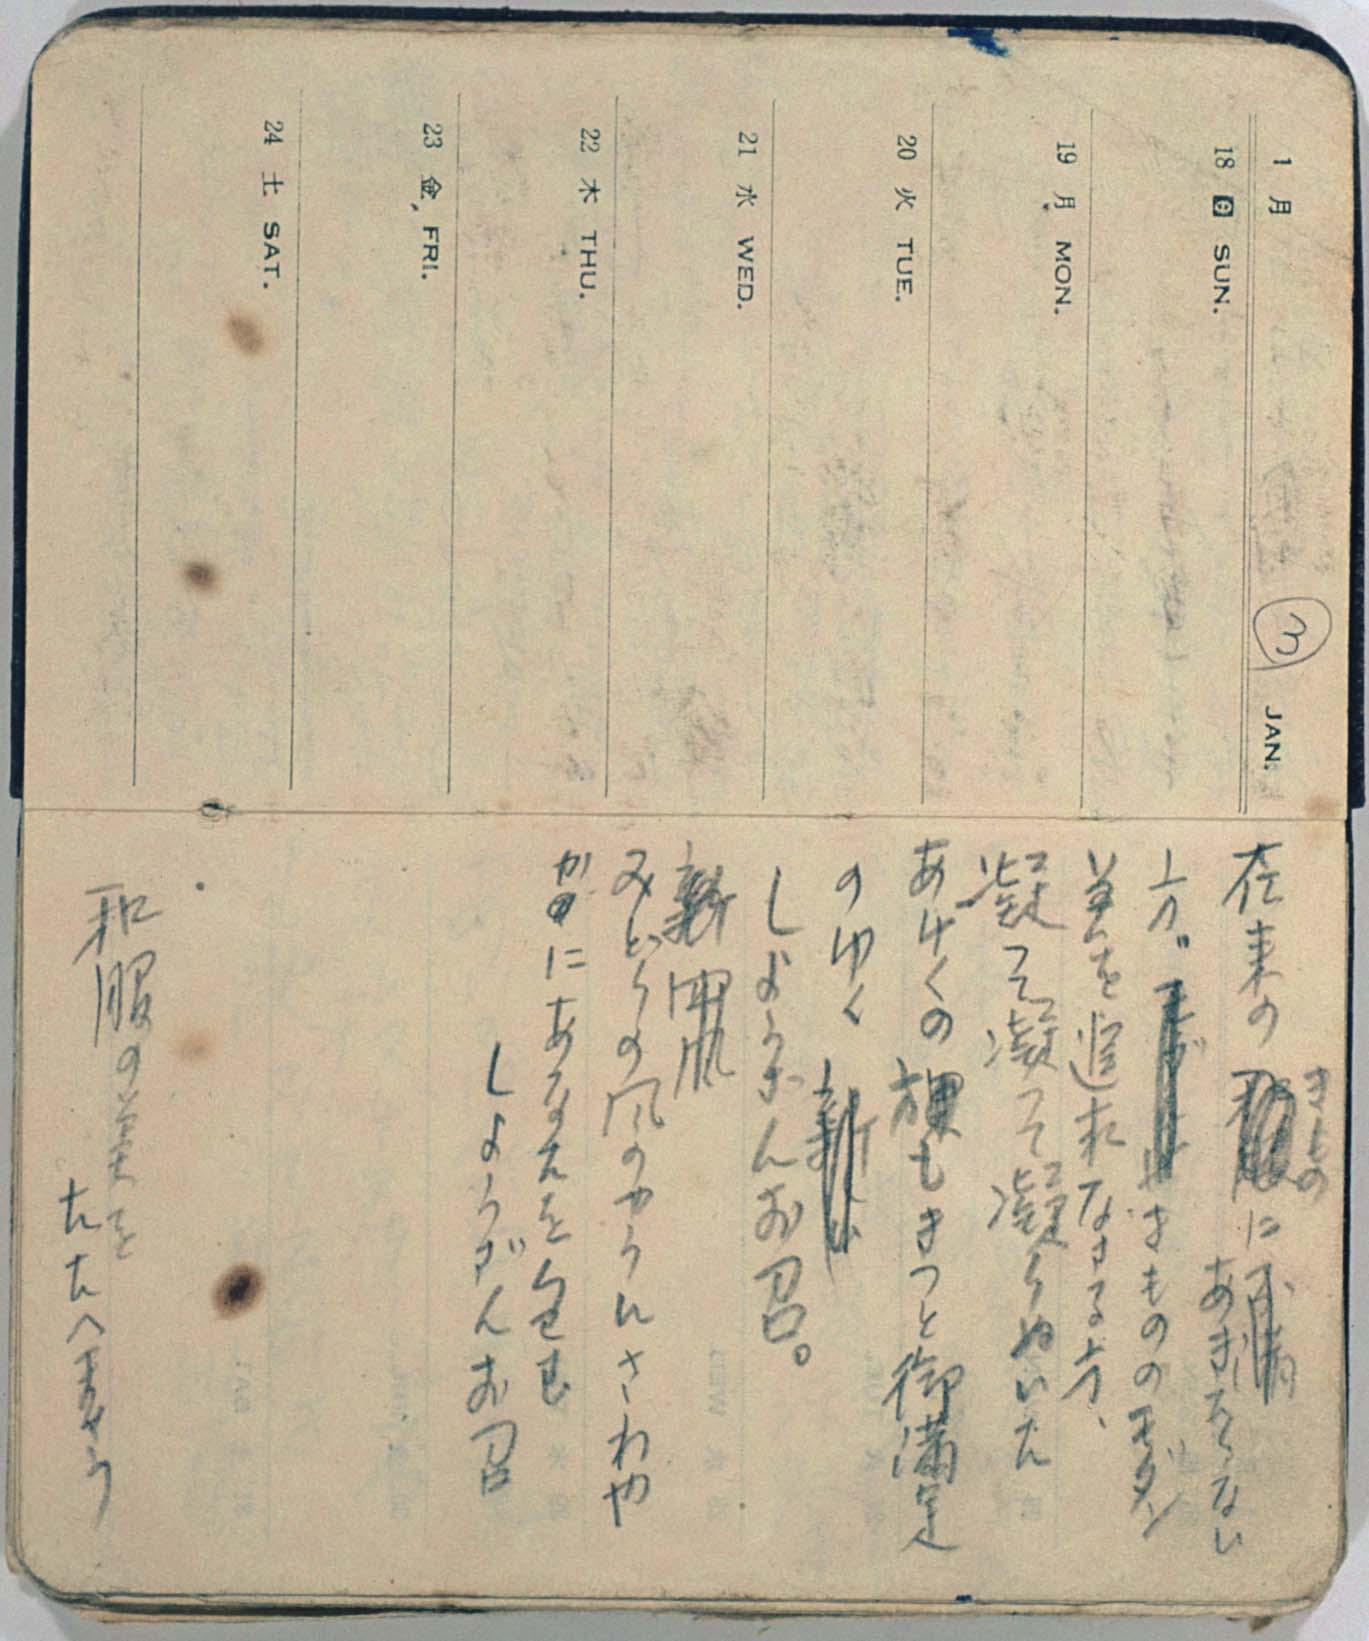 1 月 3 JAN.
18 日 SUN.
19 月 MON.
20 火 TUE.
21 水 WED.
22 木 THU.
23 金 FRI.
24 土 SAT.
きもの
在来の に不満
あきたらない
方。きもののモダン
美を追求なさる方、
凝って凝って凝りぬいた
あげくの裸もきつと御満足
のゆく
しようざんお召。
新肌
みどりの風のやうにさわや
かにあなたを包む
しようざんお召
和服の美を
たたへませう